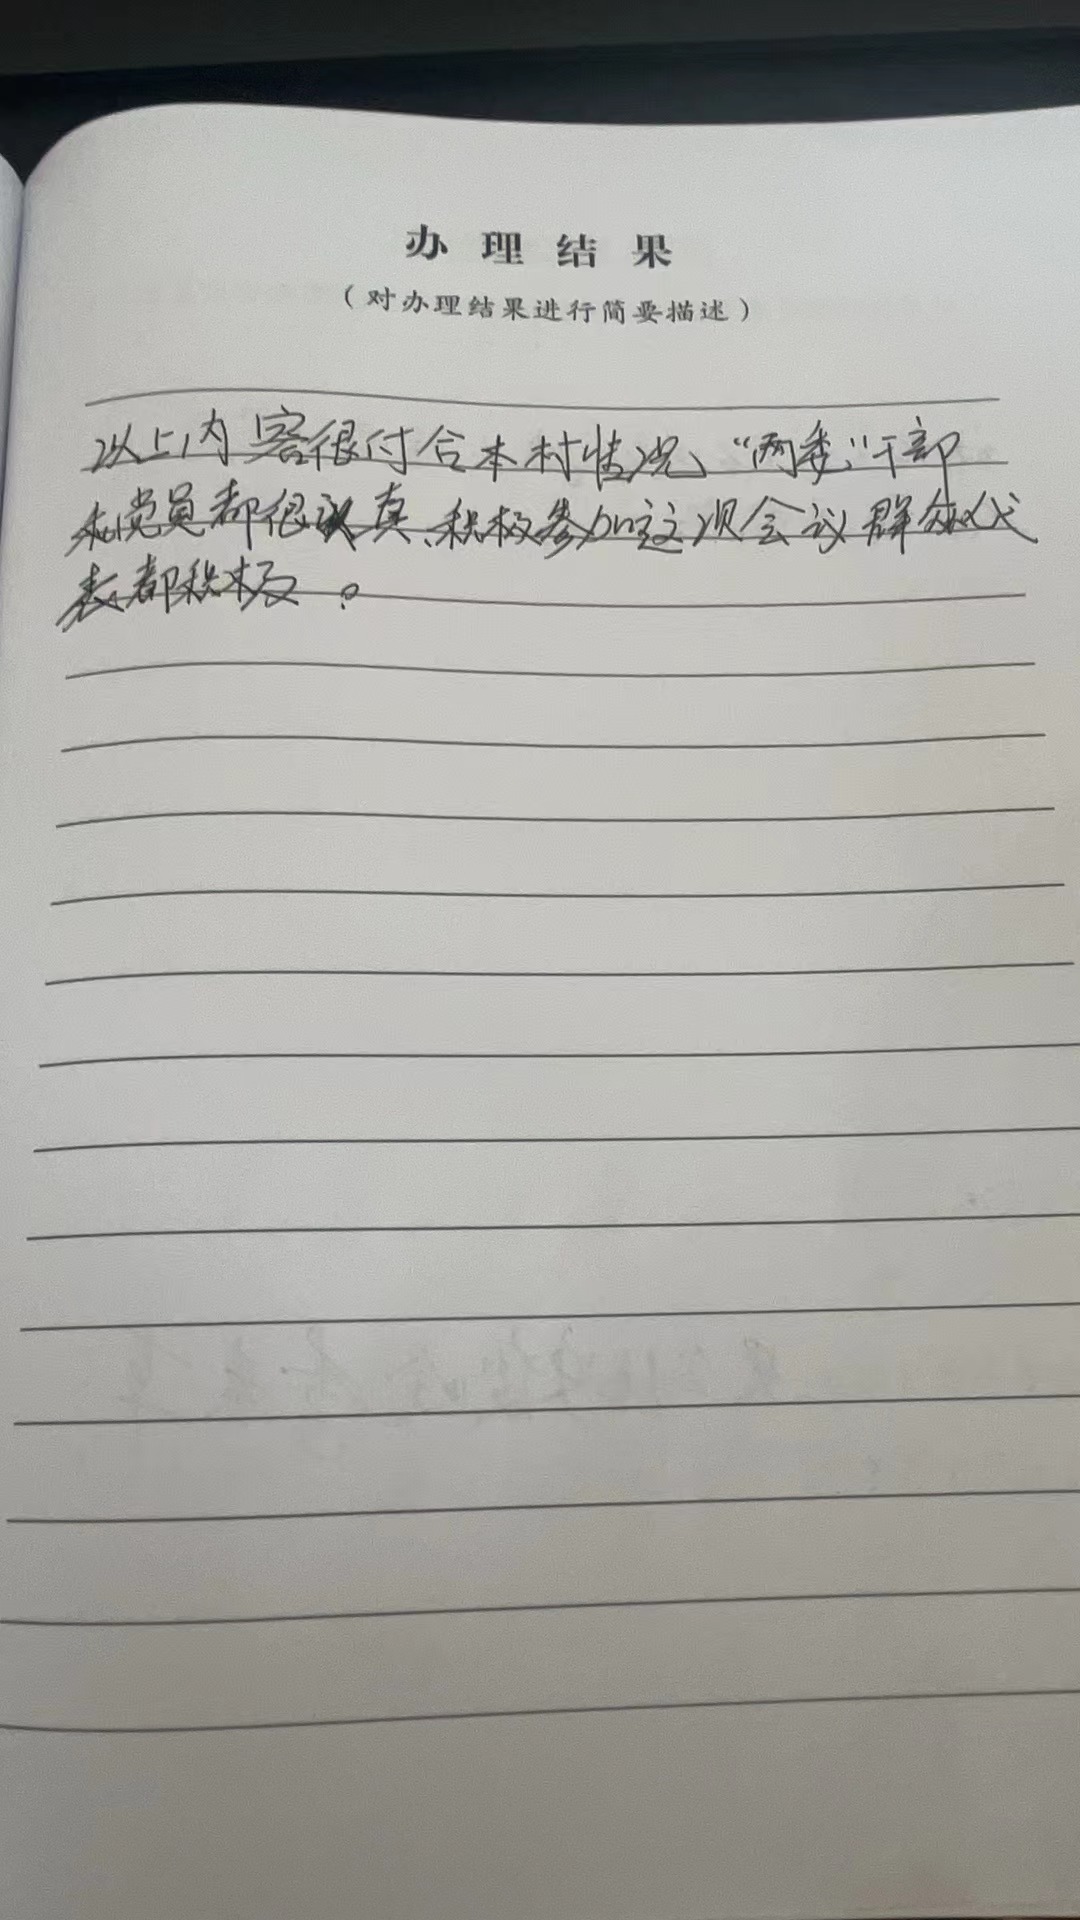 办理结果
（对办理结果进行简要描述）
以上内容很付合本村情况、“两委”干部
和党员都很认真、积极参加这次会议群众代
表都积极。